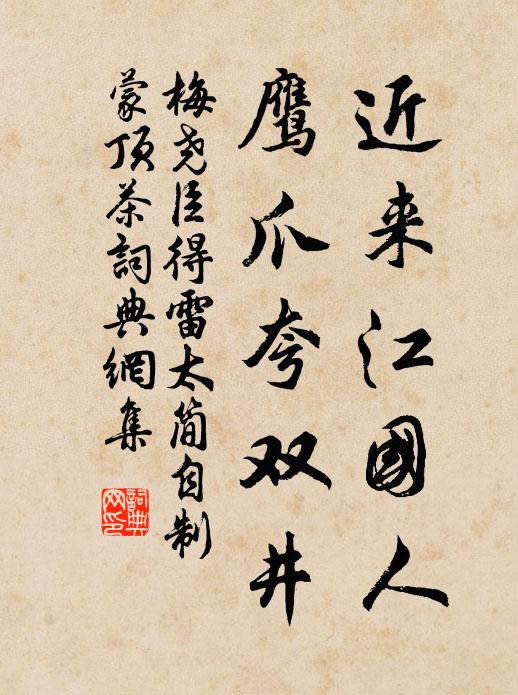 近来江國人
鹰爪夸双井
梅尧臣得雷太简自制
蒙顶茶詞典網集
詞典网印